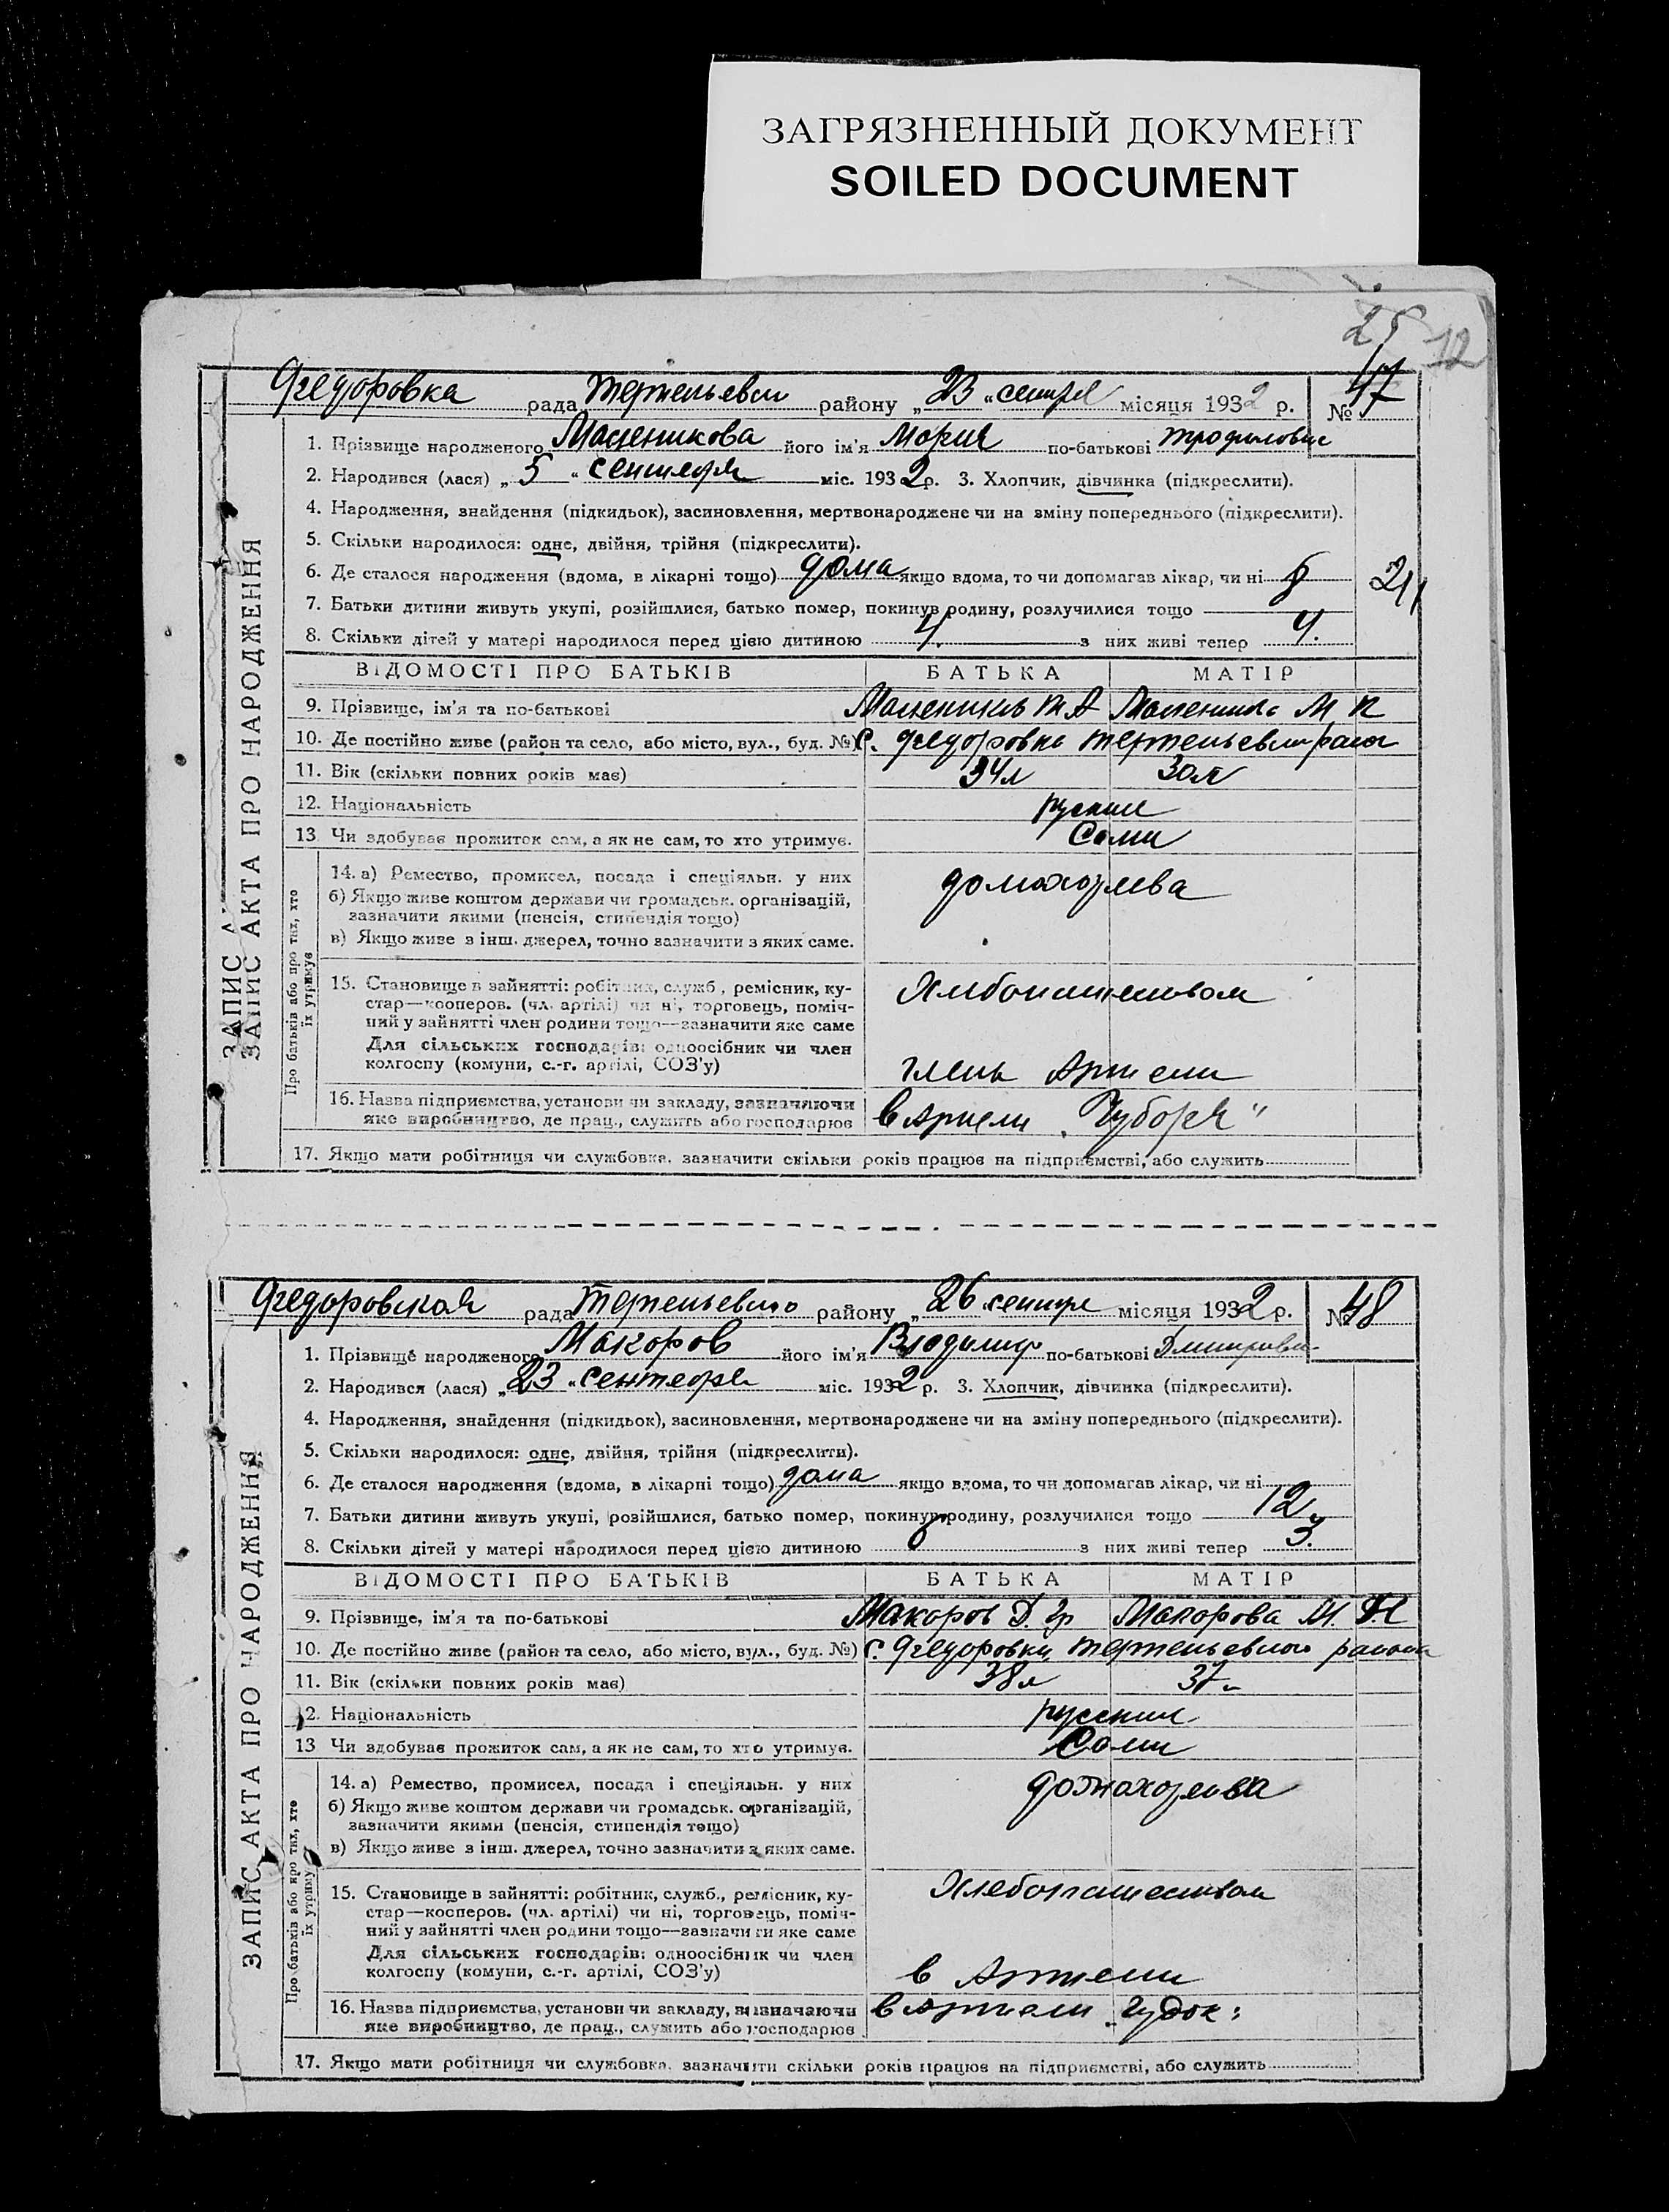 ЗАГРЯЗНЕННЫЙ ДОКУМЕНТ
SOILED DOCUMENT
25 12
Федоровка рада района „23“ сентября місяця 1932 р. № 47
ЗАПИС АКТА ПРО НАРОДЖЕННЯ
1. Прізвище народженого його ім'я Мария по-батькові
2. Народився (лася) „5“ сентября міс. 1932 р. 3. Хлопчик, дівчинка (підкреслити).
4. Народження, знайдення (підкидьок), засиновлення, мертвонароджене чи на зміну попереднього (підкреслити).
5. Скільки народилося: одне, двійня, трійня (підкреслити).
6. Де сталося народження (вдома, в лікарні тощо) дома якщо вдома, то чи допомагав лікар, чи ні
7. Батьки дитини живуть укупі, розійшлися, батько помер, покинув родину, розлучилися тощо
8. Скільки дітей у матері народилося перед цією дитиною 4. з них живі тепер 4.
ВІДОМОСТІ ПРО БАТЬКІВ БАТЬКА МАТІР
9. Прізвище, ім'я та по-батькові
10. Де постійно живе (район та село, або місто, вул., буд. №) с. Федоровка
11. Вік (скільки повних років має) 34 л 30 л
12. Національність руские
13 Чи здобуває прожиток сам, а як не сам, то хто утримує. Сами
Про батьків або про тих, хто їх утримує
14. а) Ремество, промисел, посада і спеціяльн. у них
б) Якщо живе коштом держави чи громадськ. організацій,
зазначити якими (пенсія, стипендія тощо)
в) Якщо живе з інш. джерел, точно зазначити з яких саме.
15. Становище в зайнятті: робітник, служб., ремісник, ку-
стар—кооперов. (чл. артілі) чи ні, торговець, поміч-
ний у зайнятті член родини тощо—зазначити яке саме
Для сільських господарів: одноосібник чи член
колгоспу (комуни, с.-г. артілі, СОЗ'у) член Артели
16. Назва підприємства, установи чи закладу, зазначаючи
яке виробництво, де прац., служить або господарює в Артели
17. Якщо мати робітниця чи службовка, зазначити скільки років працює на підприємстві, або служить
Федоровская рада району „26 сентября місяця 1932 р. № 48
ЗАПИС АКТА ПРО НАРОДЖЕННЯ
1. Прізвище народженого Макоров його ім'я Владимир по-батькові
2. Народився (лася) „23“ сентября міс. 1932 р. 3. Хлопчик, дівчинка (підкреслити).
4. Народження, знайдення (підкидьок), засиновлення, мертвонароджене чи на зміну попереднього (підкреслити).
5. Скільки народилося: одне, двійня, трійня (підкреслити).
6. Де сталося народження (вдома, в лікарні тощо) дома якщо вдома, то чи допомагав лікар, чи ні
7. Батьки дитини живуть укупі, розійшлися, батько помер, покинув родину, розлучилися тощо 12
8. Скільки дітей у матері народилося перед цією дитиною з них живі тепер 3.
ВІДОМОСТІ ПРО БАТЬКІВ БАТЬКА МАТІР
9. Прізвище, ім'я та по-батькові Макоров Д. Гр Макорова М.
10. Де постійно живе (район та село, або місто, вул., буд. №) с. Федоровки района
11. Вік (скільки повних років має) 38 л 37
12. Національність русские
13 Чи здобуває прожиток сам, а як не сам, то хто утримує. Сами
Про батьків або про тих, хто їх утримує
14. а) Ремество, промисел, посада і спеціяльн. у них
б) Якщо живе коштом держави чи громадськ. організацій,
зазначити якими (пенсія, стипендія тощо)
в) Якщо живе з інш. джерел, точно зазначити з яких саме.
15. Становище в зайнятті: робітник, служб., ремісник, ку-
стар—косперов. (чл. артілі) чи ні, торговець, поміч-
ний у зайнятті член родини тощо—зазначити яке саме
Для сільських господарів: одноосібник чи член
колгоспу (комуни, с.-г. артілі, СОЗ'у) в Артели
16. Назва підприємства, установи чи закладу, визначаючи
яке виробництво, де прац., служить або господарює в Артели
17. Якщо мати робітниця чи службовка, зазначити скільки років працює на підприємстві, або служить